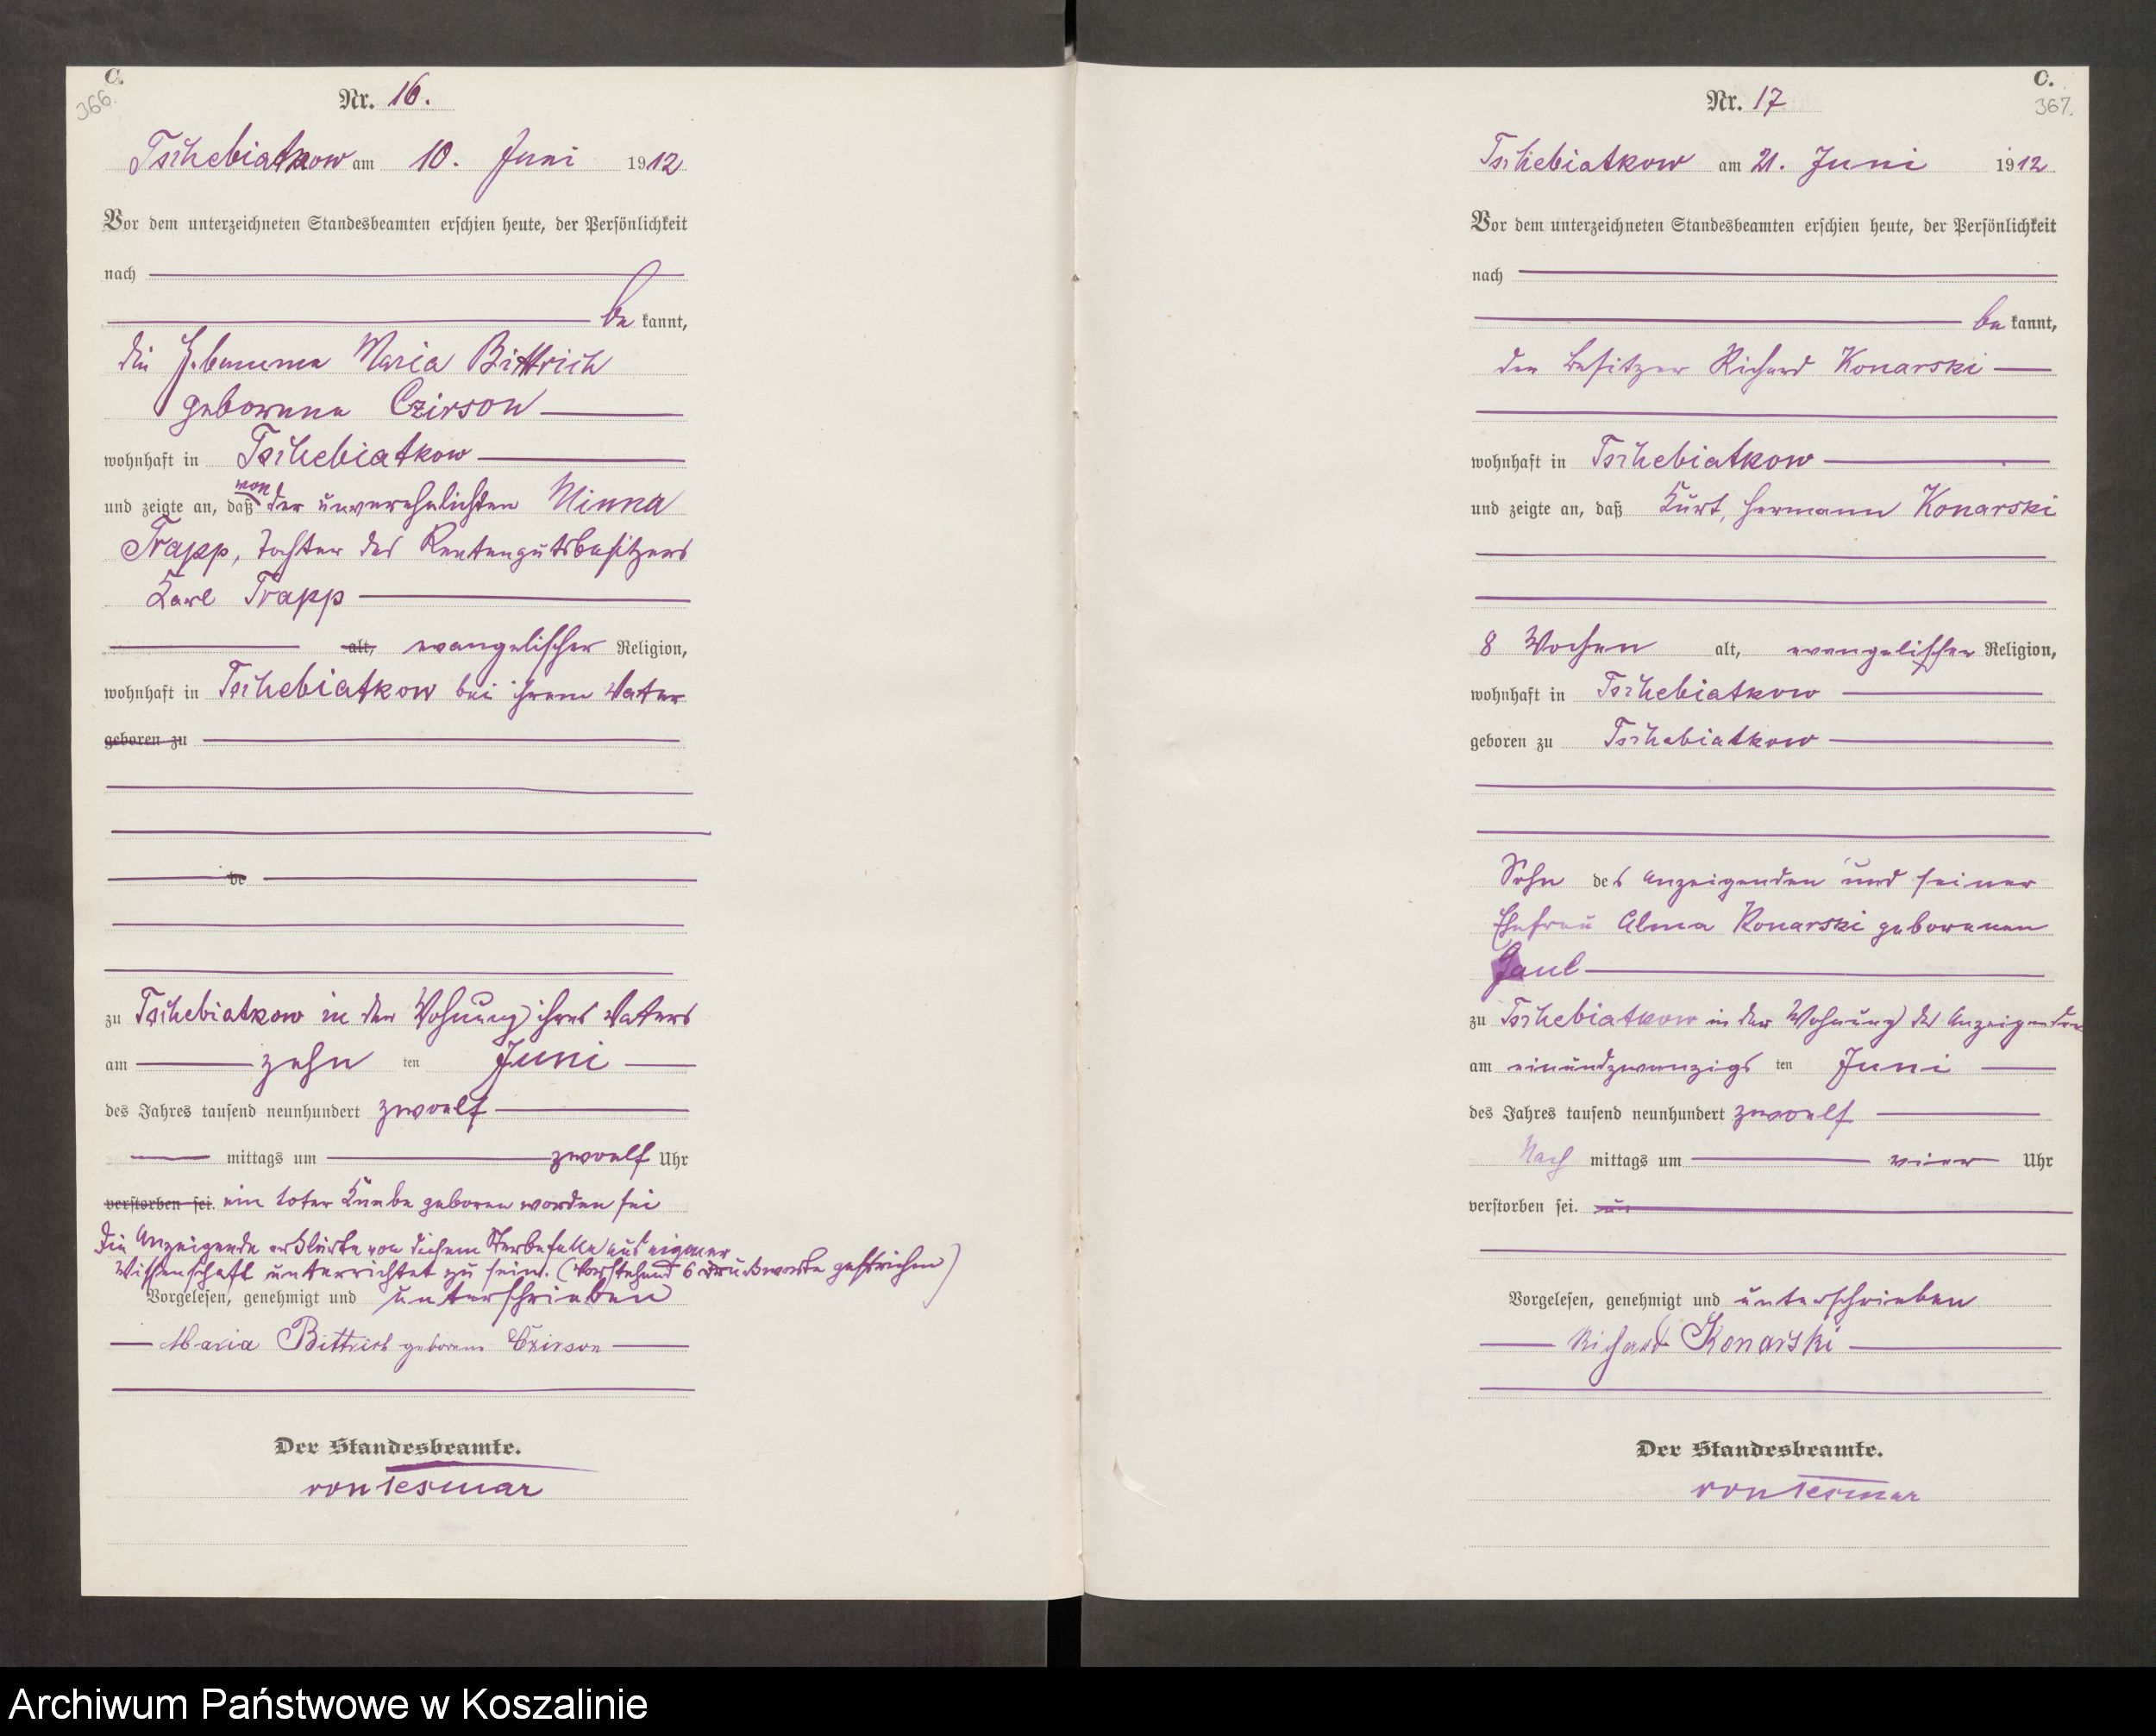 C.
366.
Nr. 16.
Tschebiatkow am 10. Juni 1912
Vor dem unterzeichneten Standesbeamten erschien heute, der Persönlichkeit
nach
be kannt,
die Hebamme Maria Bittrich
geborene Czirson
wohnhaft in Tschebiatkow
und zeigte an, daß von der unverehelichten Minna
Trapp, Tochter des Rentengutsbesitzers
Karl Trapp
alt, evangelischer Religion,
wohnhaft in Tschebiatkow bei ihrem Vater
geboren zu
de
zu Tschebiatkow in der Wohnung ihres Vaters
am zehn ten Juni
des Jahres tausend neunhundert zwoelf
mittags um zwoelf Uhr
verstorben sei. ein toter Knabe geboren worden sei
Die Anzeigende erklärte von diesem Sterbefalle aus eigener
Wissenschaft unterrichtet zu sein. (Vorstehend 6 Druckworte gestrichen)
Vorgelesen, genehmigt und unterschrieben
Maria Bittrich geborene Czirson
Der Standesbeamte.
von Tesmar
C.
367.
Nr. 17
Tschebiatkow am 21. Juni 1912
Vor dem unterzeichneten Standesbeamten erschien heute, der Persönlichkeit
nach
be kannt,
der Besitzer Richard Konarski
wohnhaft in Tschebiatkow
und zeigte an, daß Kurt, Hermann Konarski
8 Wochen alt, evangelischer Religion,
wohnhaft in Tschebiatkow
geboren zu Tschebiatkow
Sohn des Anzeigenden und seiner
Ehefrau Alma Konarski geborenen
Gaul
zu Tschebiatkow in der Wohnung des Anzeigenden
am einundzwanzigs ten Juni
des Jahres tausend neunhundert zwoelf
Nach mittags um vier Uhr
verstorben sei.
Vorgelesen, genehmigt und unterschrieben
Richard Konarski
Der Standesbeamte.
von Tesmar
Archiwum Państwowe w Koszalinie